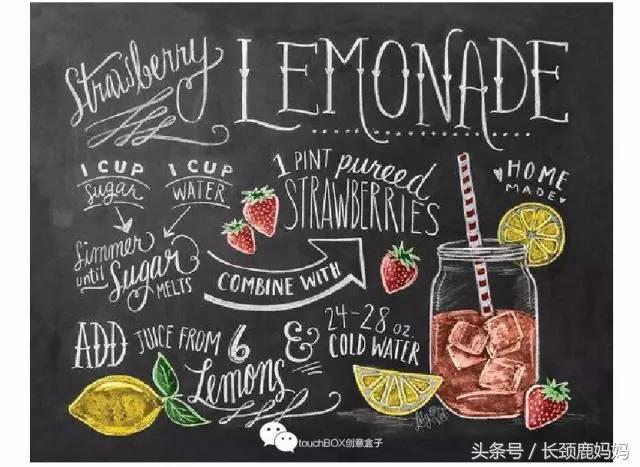 Strawberry LEMONADE
1 CUP Sugar
1 CUP WATER
Simmer until Sugar MELTS
COMBINE WITH
1 PINT pureed STRAWBERRIES
HOME MADE
ADD JUICE FROM 6 Lemons
& 24-28 oz. COLD WATER
touchBOX创意盒子
头条号 / 长颈鹿妈妈